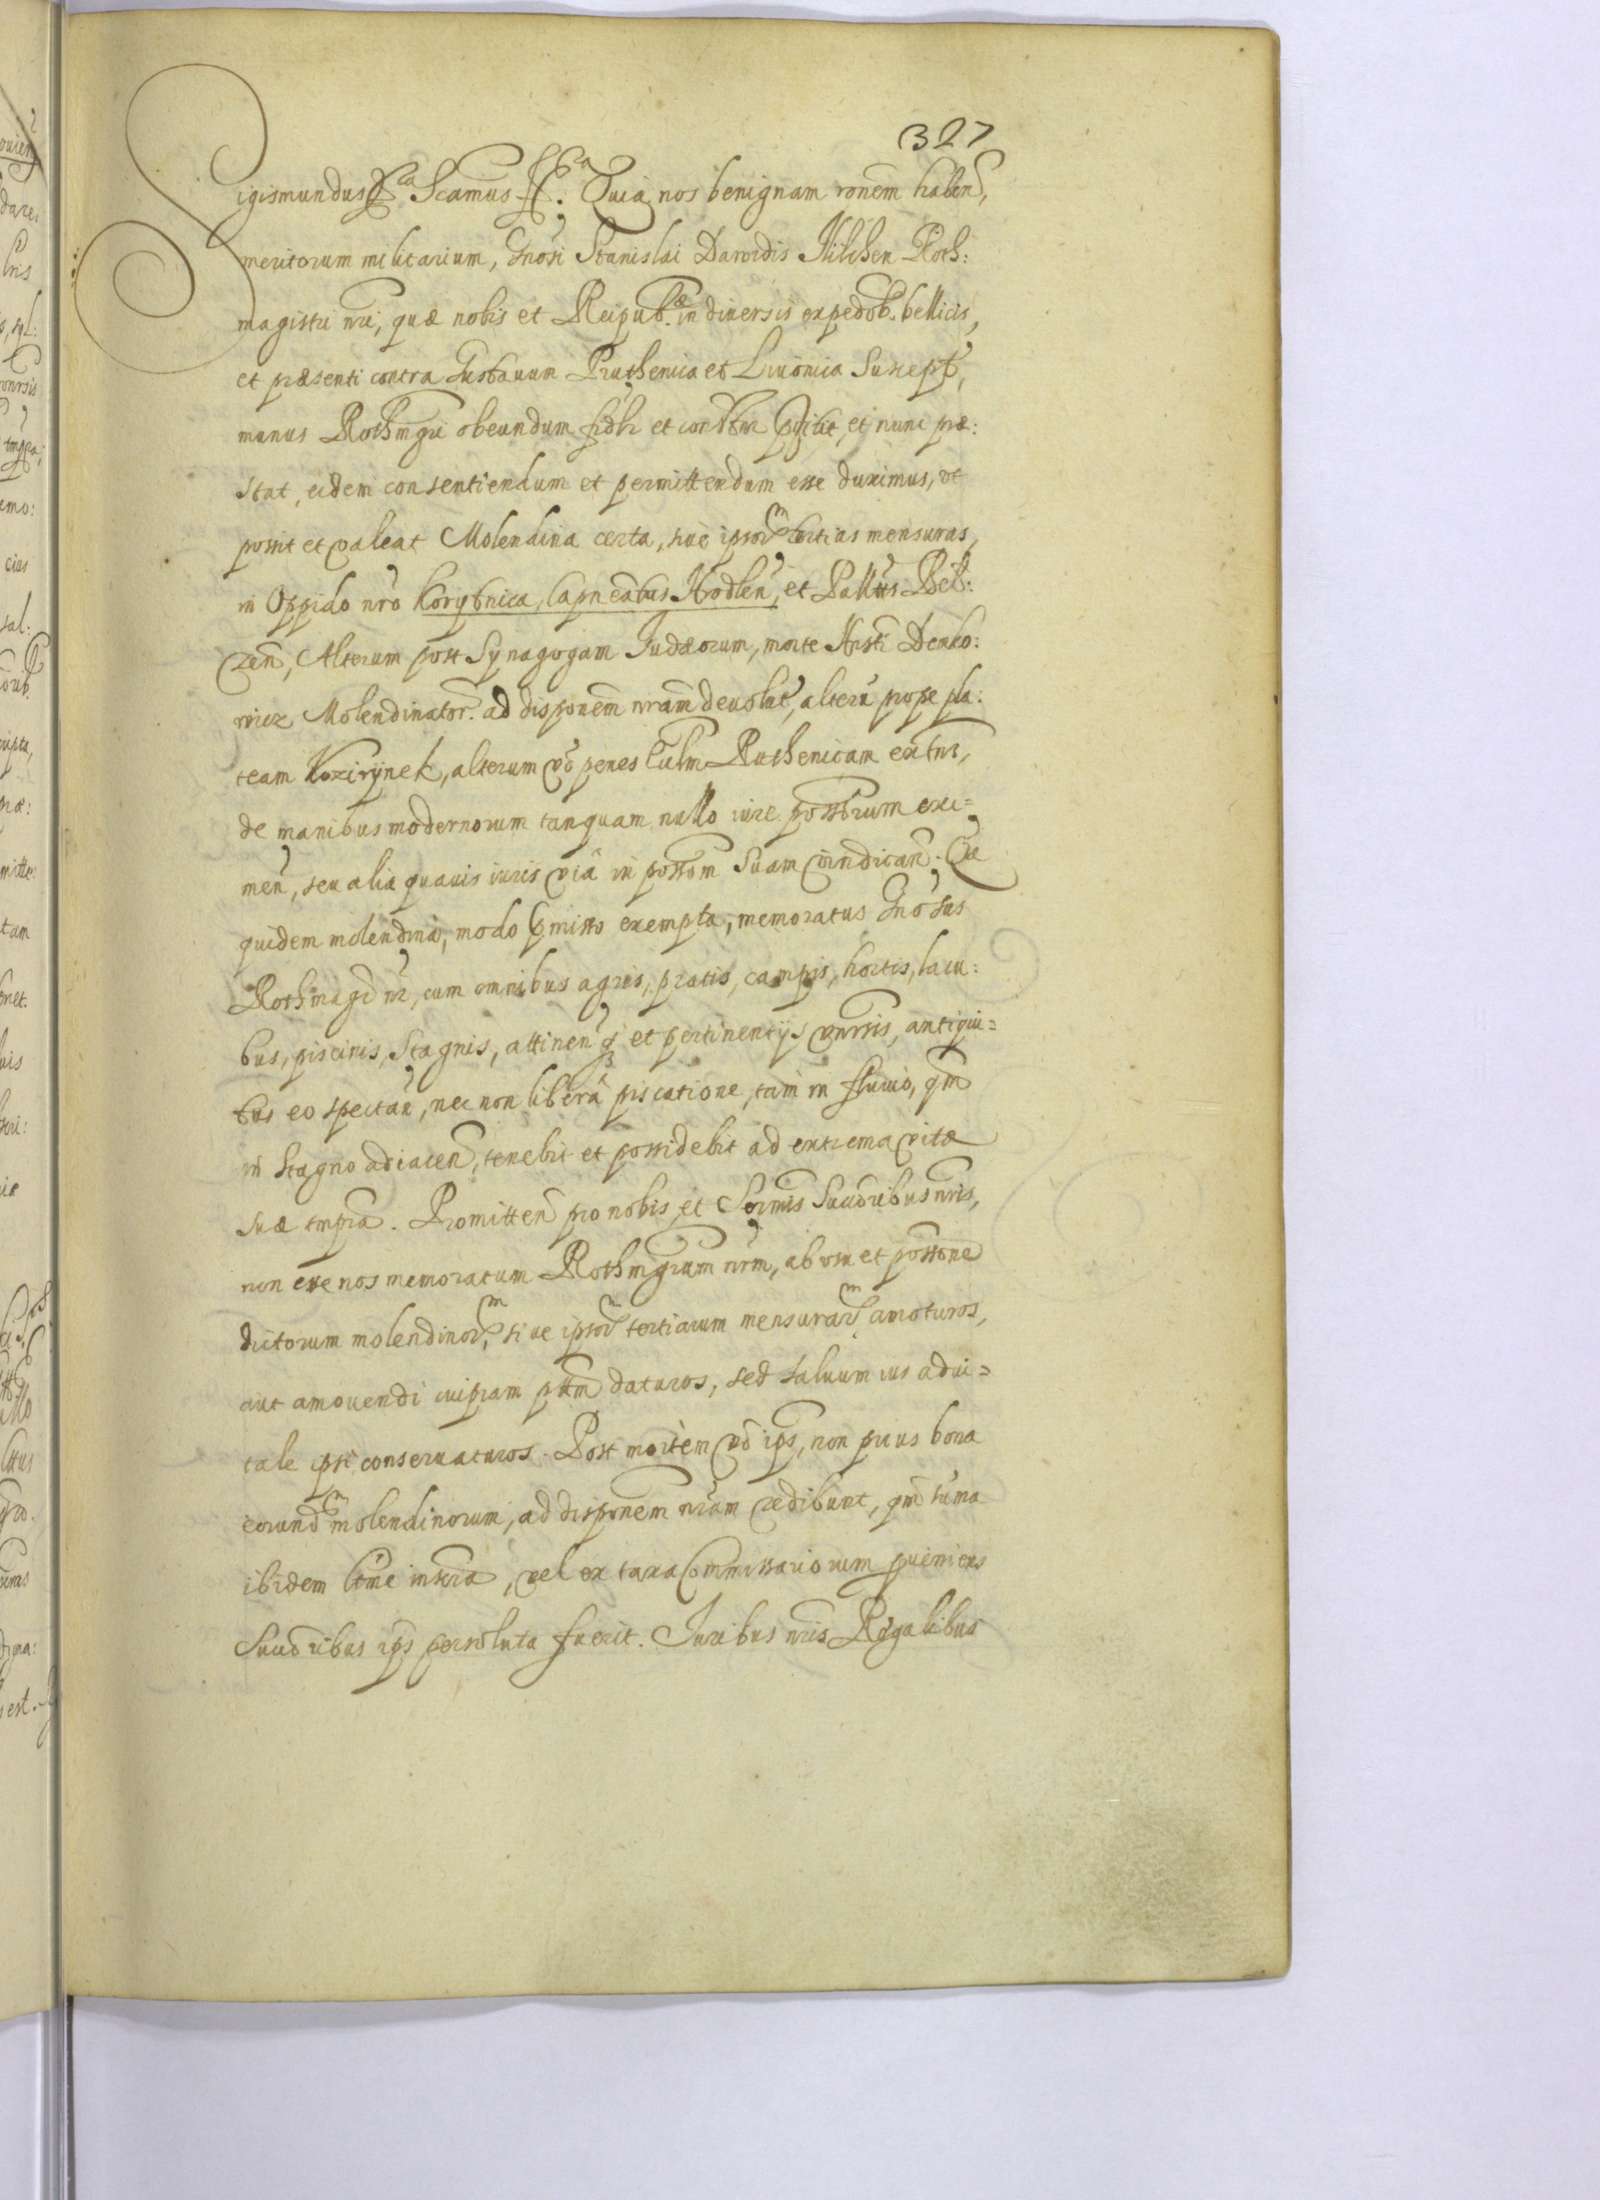 327
Sigismundus &ca Scamus &ca. Quia nos benignam ronem haben,
meritorum militarium, Gnosi Stanislai Dawidis Hilchen Roth:
magistri nri, quæ nobis et Reipub.æ in diversis expedob. bellicis,
et præsenti contra Gustavum Pruthenica et Livonica suscept,
munus Rothmgri obeundum fidlr et constnr et nunc præ:
stat, eidem consentiendum et permittendum esse duximus, ut
possit et valeat Molendina certa, sive ipsorm tertias mensuras,
in Oppido nro Korytnica, Capneatus Hodlen, et Pallus Bel:
zen, Alterum post Synagogam Judæorum, morte Hrsti Denko:
wicz Molendinator. ad disponem nram devolut, alterũ prope pla:
team Kozirynek, alterum vo penes Ecclm Ruthenicam extns,
de manibus modernorum tanquam nullo iure possorum exi=
men, seu alia quavis iuris viâ in possom suam vindican. Quæ
quidem molendina, modo pmisso exempta, memoratus Gnosus
Rothmagr nr, cum omnibus agris, pratis, campis, hortis, lacu:
bus, piscinis, stagnis, attinen q3 et pertinentijs vnrsis, antiqui=
tus eo spectan, nec non liberâ piscatione, tam in fluvio, qm
in stagno adiacen, tenebit et possidebit ad extrema vitæ
suæ tmpra. Promitten pro nobis et Sermis Succoribus nris,
non esse nos memoratum Rothmgrum nrm, ab usu et possone
dictorum molendinorm, sive ipsorm tertiarum mensurarm amoturos,
aut amovendi cuipiam pttm daturos, sed salvum ius advi=
tale ipsi conservaturos. Post mortem vo ips, non prius bona
eorundm molendinorum, ad disponem nram redibunt, qm suma
ibidem ltme inscra, vel ex taxa Commissariorum pveniens
Succoribus ips persoluta fuerit. Juribus nris Regalibus